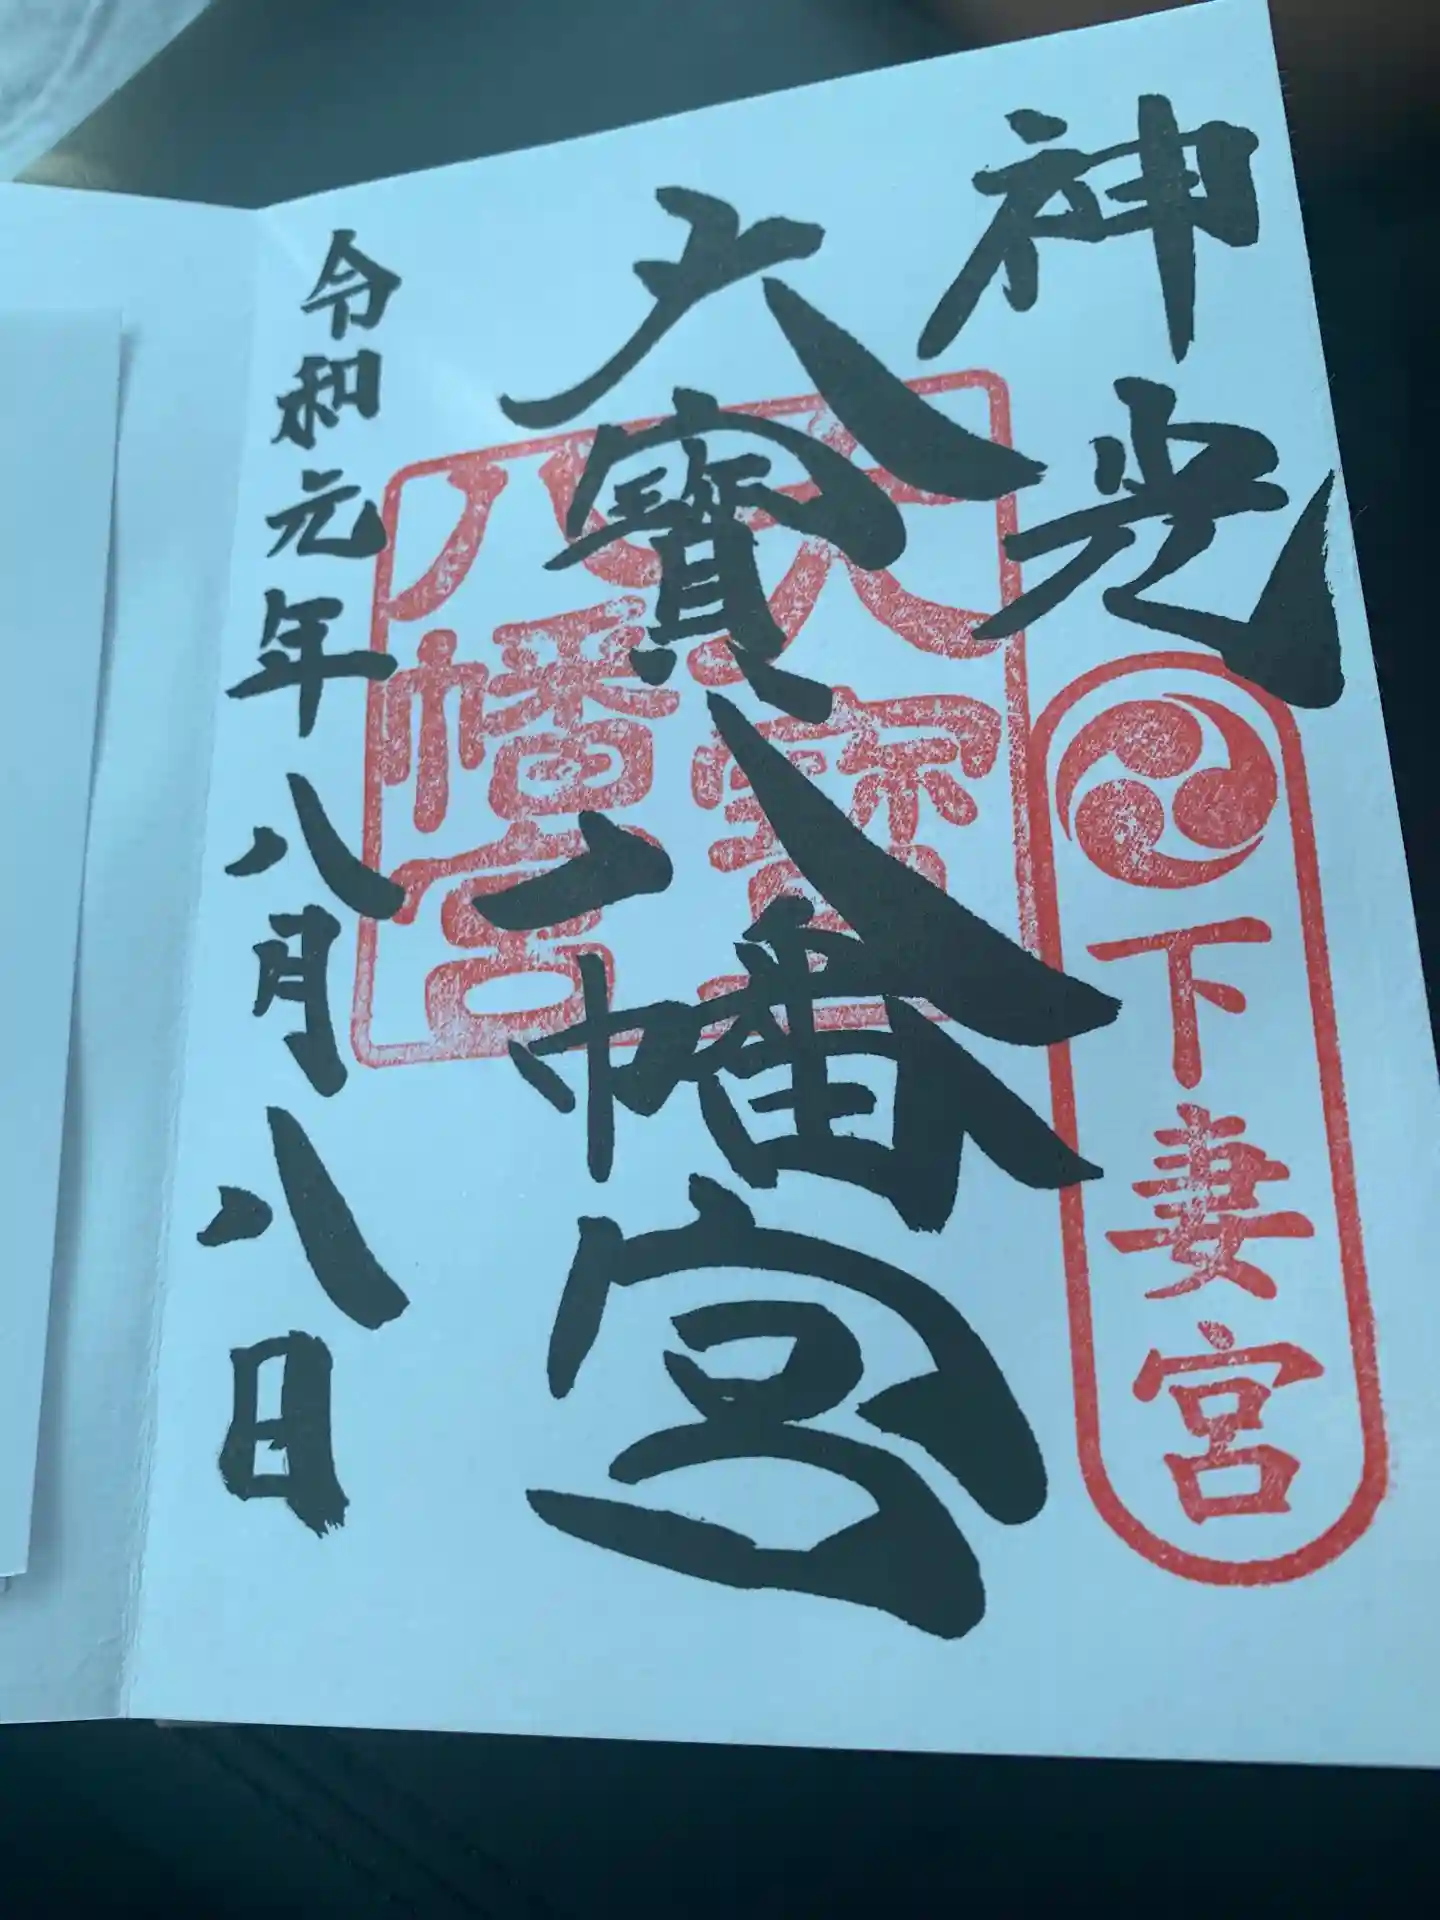 神光
下妻宮
大寶八幡宮
大寶八幡宮
令和元年八月八日